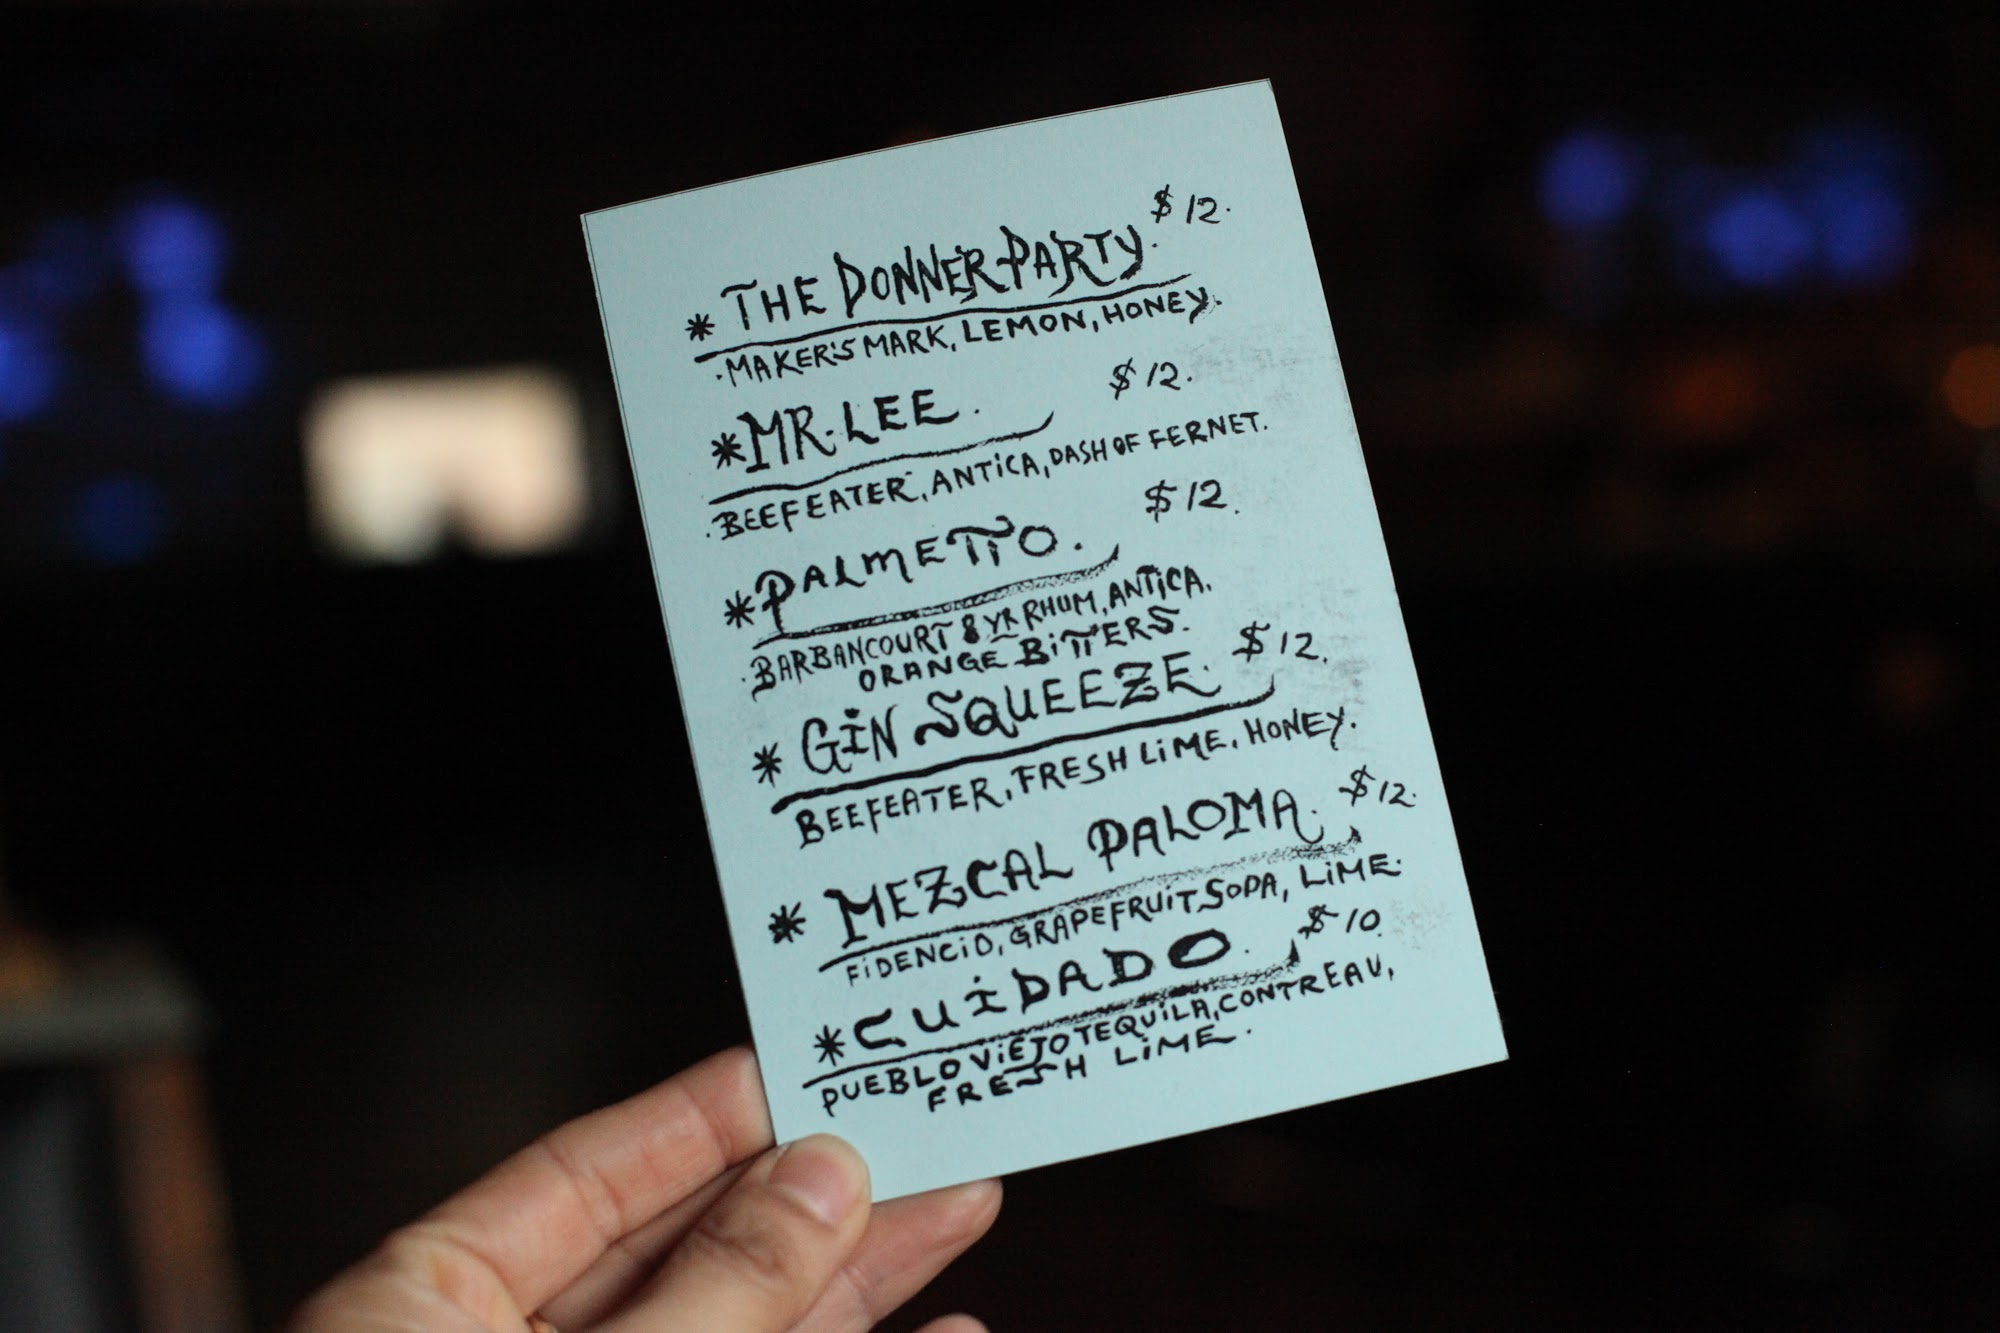 $12.
* THE DONNER PARTY.
. MAKER'S MARK, LEMON, HONEY.
$12.
* MR. LEE.
. BEEFEATER, ANTiCA, DASH OF FERNET.
$12.
* PALMETTO.
. BARBANCOURT 8 YR RHUM, ANTiCA,
ORANGE BiTTERS.
* GiN SQUEEZE. $12.
BEEFEATER, FRESH LiME, HONEY.
* MEZCAL PALOMA. $12.
FiDENCiO, GRAPEFRUiT SODA, LiME.
* CUiDADO. $10.
PUEBLO ViEJO TEQUiLA, CONTREAU,
FRESH LiME.